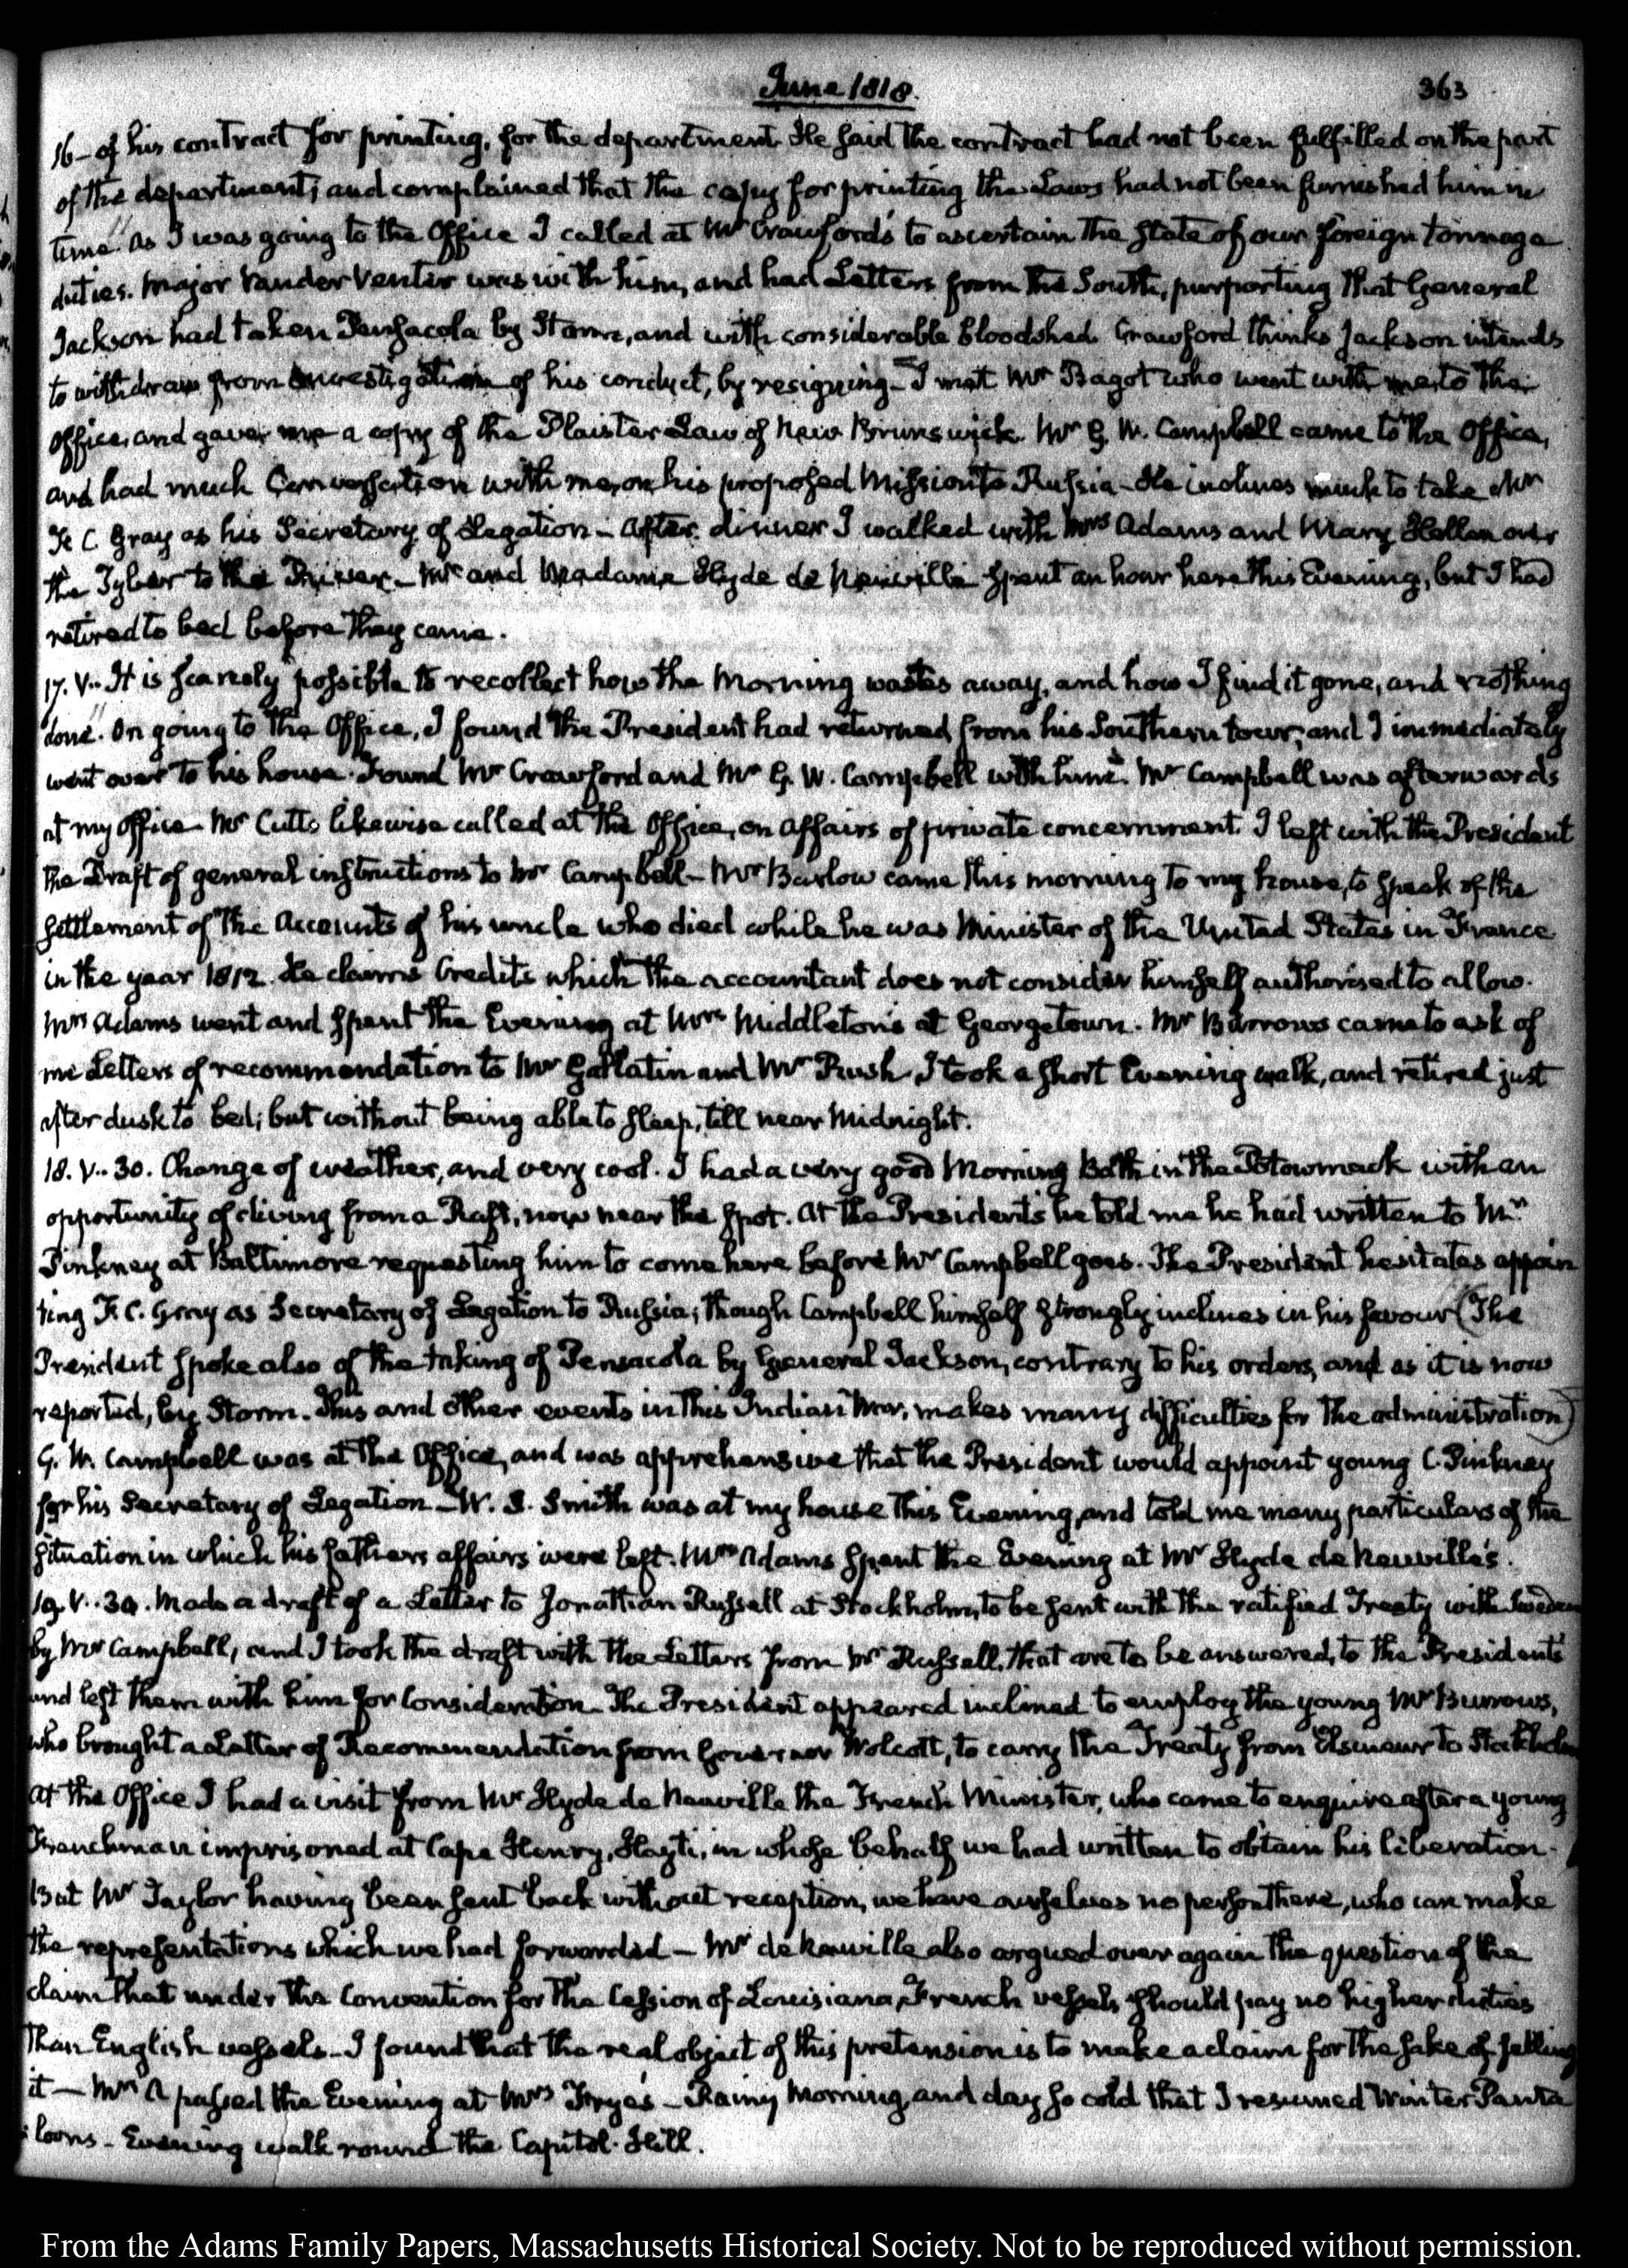 June 1818.
363
16— of his contract for printing, for the department. He said the contract had not been fulfilled on the part
of the department; and complained that the copy for printing the Laws had not been furnished him in
time. As I was going to the Office I called at Mr Crawford's to ascertain the State of our foreign tonnage
duties. Major Vander Venter was with him, and had Letters from the South, purporting that General
Jackson had taken Pensacola by Storm, and with considerable bloodshed. Crawford thinks Jackson intends
to withdraw from investigation of his conduct, by resigning— I met Mr Bagot who went with me, to the
Office, and gave me a copy of the Plaister Law of New Brunswick. Mr G. W. Campbell came to the Office,
and had much Conversation with me, on his proposed Mission to Russia— He inclines much to take Mr
F. C. Gray as his Secretary of Legation— After dinner I walked with Mrs Adams and Mary Hellen over
the Tyber to the River— Mr and Madame Hyde de Neuville spent an hour here this Evening, but I had
retired to bed before they came.
17. V.. It is scarcely possible to recollect how the Morning wastes away, and how I find it gone, and nothing
done. On going to the Office, I found the President had returned from his Southern tour, and I immediately
went over to his house. Found Mr Crawford and Mr G. W. Campbell with him. Mr Campbell was afterwards
at my Office— Mr Cutts likewise called at the Office, on affairs of private concernment. I left with the President
the Draft of general instructions to Mr Campbell— Mr Barlow came this morning to my house, to speak of the
settlement of the Accounts of his uncle who died while he was Minister of the United States in France
in the year 1812. He claims Credits which the accountant does not consider himself authorised to allow.
Mrs Adams went and spent the Evening at Mrs Middleton's at Georgetown. Mr Burrows came to ask of
me Letters of recommendation to Mr Gallatin and Mr Rush. I took a short Evening walk, and retired just
after dusk to bed; but without being able to sleep, till near Midnight.
18. V..30. Change of weather, and very cool. I had a very good Morning Bath in the Potowmack with an
opportunity of diving from a Raft, now near the spot. At the President's he told me he had written to Mr
Pinkney at Baltimore requesting him to come here before Mr Campbell goes. The President hesitates appoin
ting F. C. Gray as Secretary of Legation to Russia; though Campbell himself strongly inclines in his favour (The
President spoke also of the taking of Pensacola by General Jackson, contrary to his orders, and as it is now
reported, by Storm. This and other events in this Indian War, makes many difficulties for the administration)
G. W. Campbell was at the Office, and was apprehensive that the President would appoint young C. Pinkney
for his Secretary of Legation— W. S. Smith was at my house this Evening, and told me many particulars of the
situation in which his father's affairs were left. Mrs Adams spent the Evening at Mr Hyde de Neuville's.
19. V..30. Made a draft of a Letter to Jonathan Russell at Stockholm, to be sent with the ratified Treaty with Sweden
by Mr Campbell, and I took the draft with the Letters from Mr Russell, that are to be answered, to the President's
and left them with him for consideration— The President appeared inclined to employ the young Mr Burrows,
who brought a Letter of Recommendation from Governor Wolcott, to carry the Treaty from Elsineur to Stockholm
At the Office I had a visit from Mr Hyde de Neuville the French Minister, who came to enquire after a young
Frenchman imprisoned at Cape Henry, Hayti, in whose behalf we had written to obtain his liberation.
But Mr Taylor having been sent back without reception, we have ourselves no person there, who can make
the representations which we had forwarded— Mr de Neuville also argued over again the question of the
claim that under the Convention for the Cession of Louisiana, French vessels should pay no higher duties
than English vessels— I found that the real object of this pretension is to make a claim for the sake of selling
it— Mrs A passed the Evening at Mrs Frye's— Rainy Morning, and day so cold that I resumed Winter Panta
loons— Evening walk round the Capitol Hill.
From the Adams Family Papers, Massachusetts Historical Society. Not to be reproduced without permission.